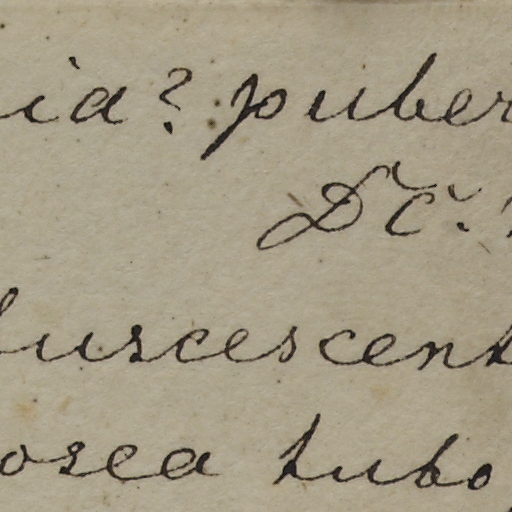 ia? puber
DC.
fuscescent
osea tubo